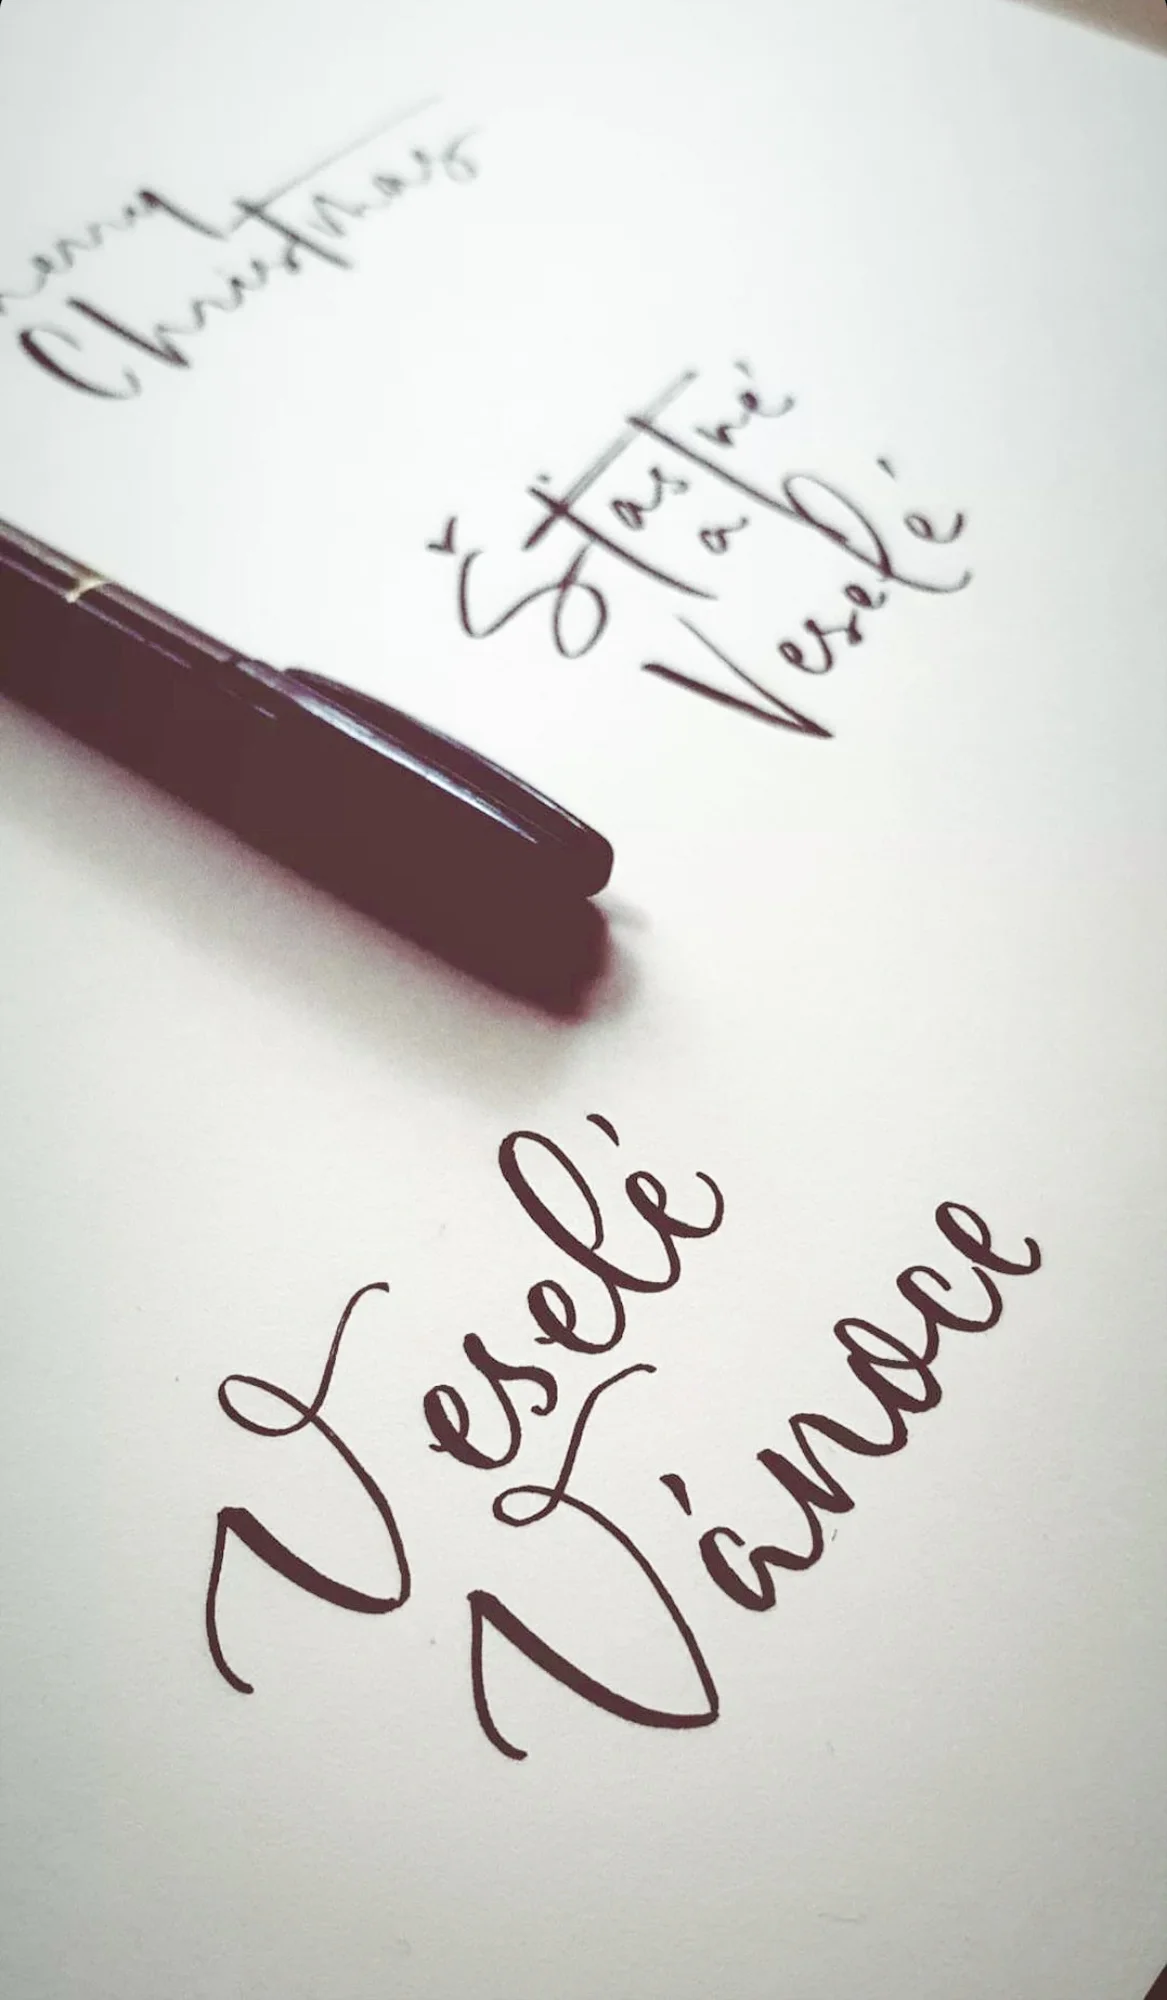 merry
Christmas
Šťastné
a
Veselé
Veselé
Vánoce